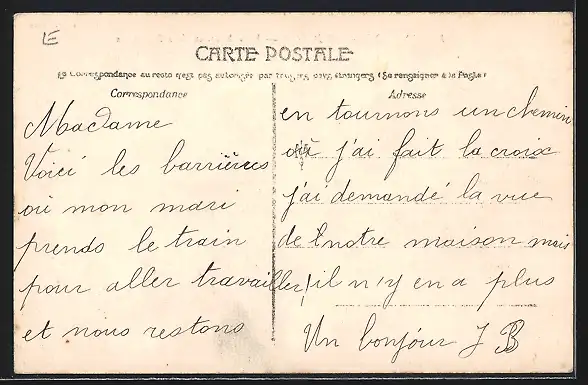 E
CARTE POSTALE
La Correspondance au recto n'est pas autorisée par tous les pays étrangers (Se renseigner à la Poste)
Correspondance
Adresse
Madame
Voici les barrières
où mon mari
prends le train
pour aller travailler
et nous restons
en tournons un chemin
où j'ai fait la croix
j'ai demandé la vue
de notre maison mais
il n'y en a plus
Un bonjour J B